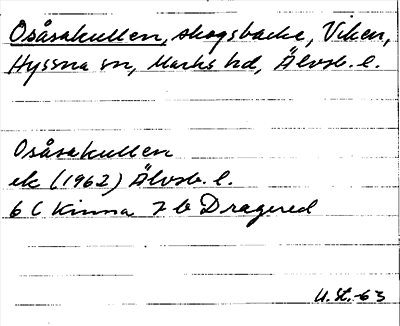 Osåsakullen, skogsbacke, Viken,
Hyssna sn, Marks hd, Älvsb. l.
Osåsakullen
ek (1962) Älvsb. l.
6 C Kinna 7 b Dragered
U. St. -63